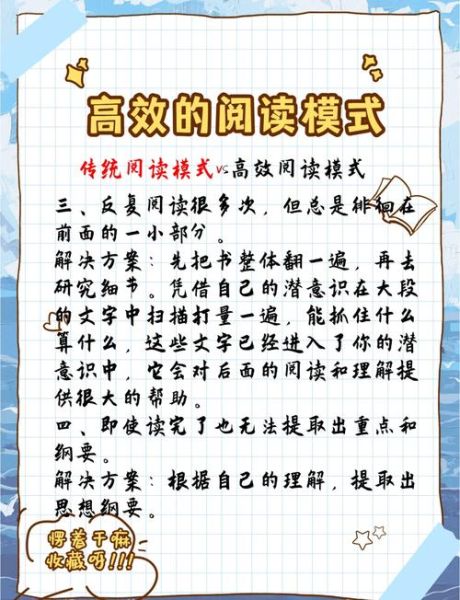 高效的阅读模式
传统阅读模式vs高效阅读模式
三、反复阅读很多次，但总是徘徊在
前面的一小部分。
解决方案：先把书整体翻一遍，再去
研究细节。凭借自己的潜意识在大段
的文字中扫描打量一遍，能抓住什么
算什么，这些文字已经进入了你的潜
意识中，它会对后面的阅读和理解提
供很大的帮助。
四、即使读完了也无法提取出重点和
纲要。
解决方案：根据自己的理解，提取出
思想纲要。
愣着干嘛
收藏呀!!!